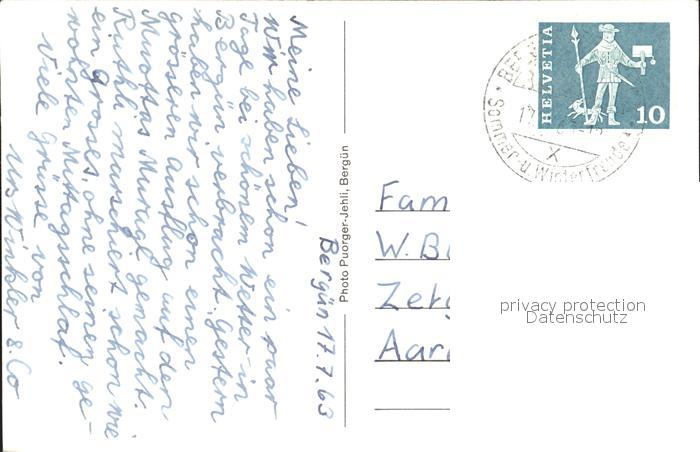 Bergün 17.7.63
Meine Lieben!
Wir haben schon ein paar
Tage bei schönem Wetter in
Bergün verbracht. Gestern
haben wir schon einen
grösseren Ausflug auf den
Muottas Muragl gemacht.
Ruthli marschiert schon wie
ein Grosses, ohne seinen ge-
wohnten Mittagsschlaf.
Viele Grüsse von
Urs Winkler & Co
Photo Puorger-Jehli, Bergün
HELVETIA
10
Sommer- u. Winterfreude
Fam
W. B
Aar
privacy protection
Datenschutz